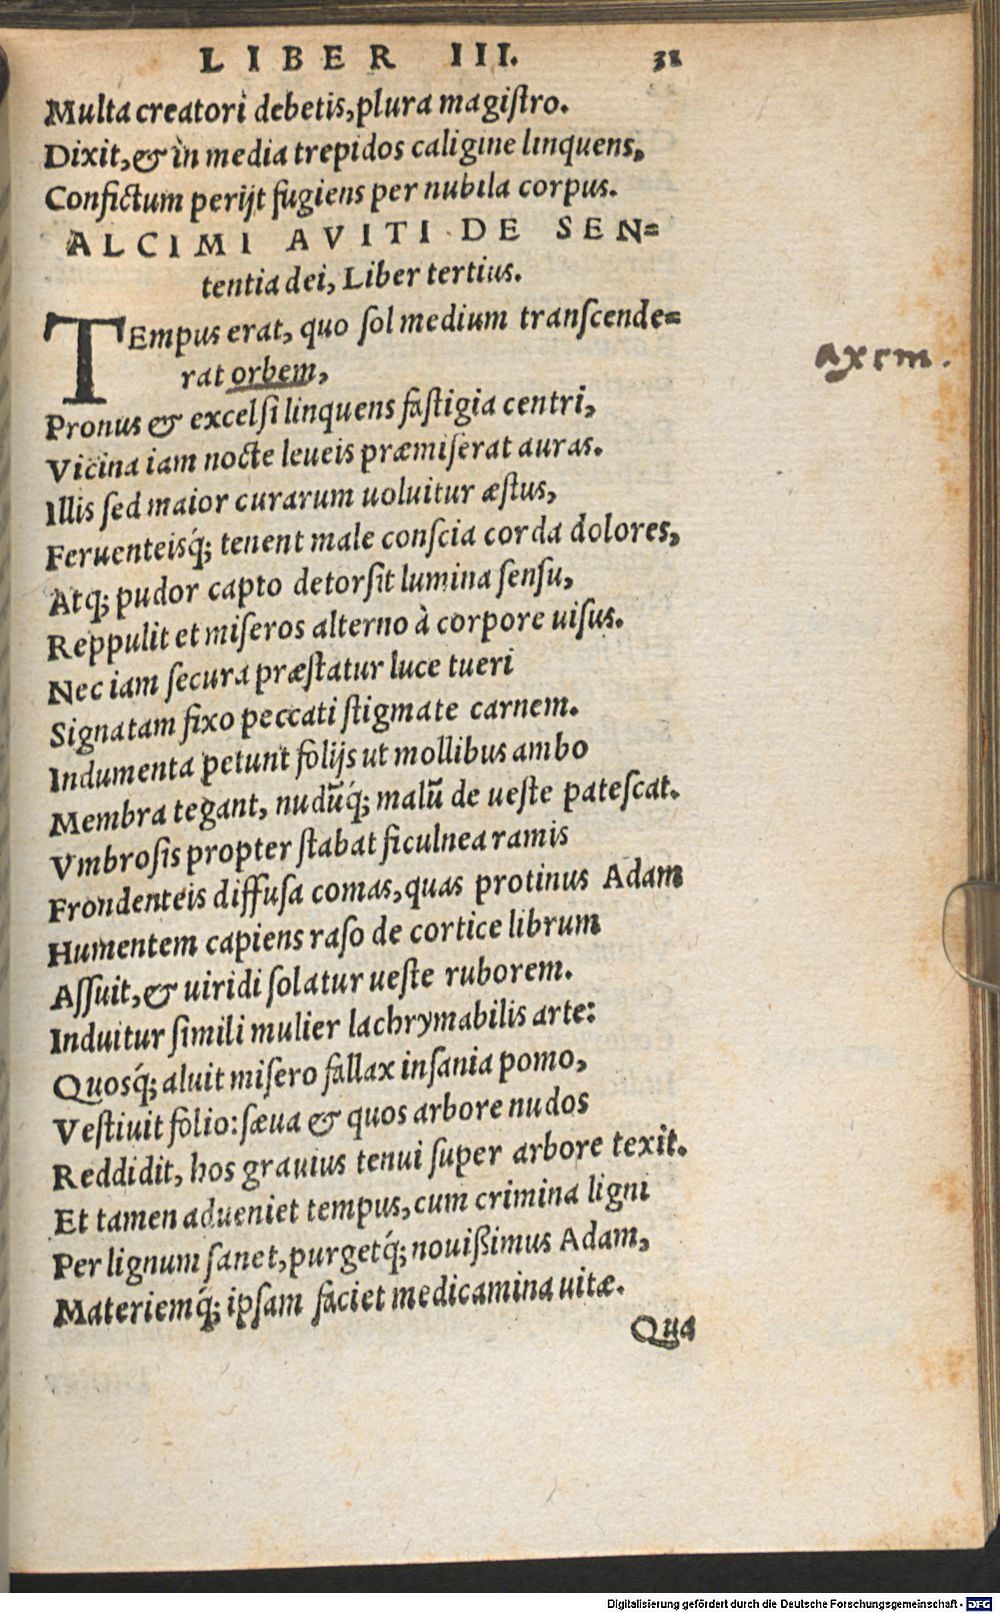 LIBER III. 31
Multa creatori debetis, plura magiſtro.
Dixit, & in media trepidos caligine linquens,
Confictum perijt fugiens per nubila corpus.
ALCIMI AVITI DE SEN=
tentia dei, Liber tertius.
TEmpus erat, quo ſol medium tranſcende=
rat orbem,
axem.
Pronus & excelſi linquens faſtigia centri,
Vicina iam nocte leueis præmiſerat auras.
Illis ſed maior curarum uoluitur æſtus,
Feruenteisq́; tenent male conſcia corda dolores,
Atq; pudor capto detorſit lumina ſenſu,
Reppulit et miſeros alterno à corpore uiſus.
Nec iam ſecura præſtatur luce tueri
Signatam fixo peccati ſtigmate carnem.
Indumenta petunt folijs ut mollibus ambo
Membra tegant, nudūq́; malū de ueſte pateſcat.
Vmbroſis propter ſtabat ficulnea ramis
Frondenteis diffuſa comas, quas protinus Adam
Humentem capiens raſo de cortice librum
Aſſuit, & uiridi ſolatur ueſte ruborem.
Induitur ſimili mulier lachrymabilis arte:
Quosq́; aluit miſero fallax inſania pomo,
Veſtiuit folio: ſæua & quos arbore nudos
Reddidit, hos grauius tenui ſuper arbore texit.
Et tamen adueniet tempus, cum crimina ligni
Per lignum ſanet, purgetq́; nouißimus Adam,
Materiemq́; ipſam faciet medicamina uitæ.
Qua
Digitalisierung gefördert durch die Deutsche Forschungsgemeinschaft - DFG